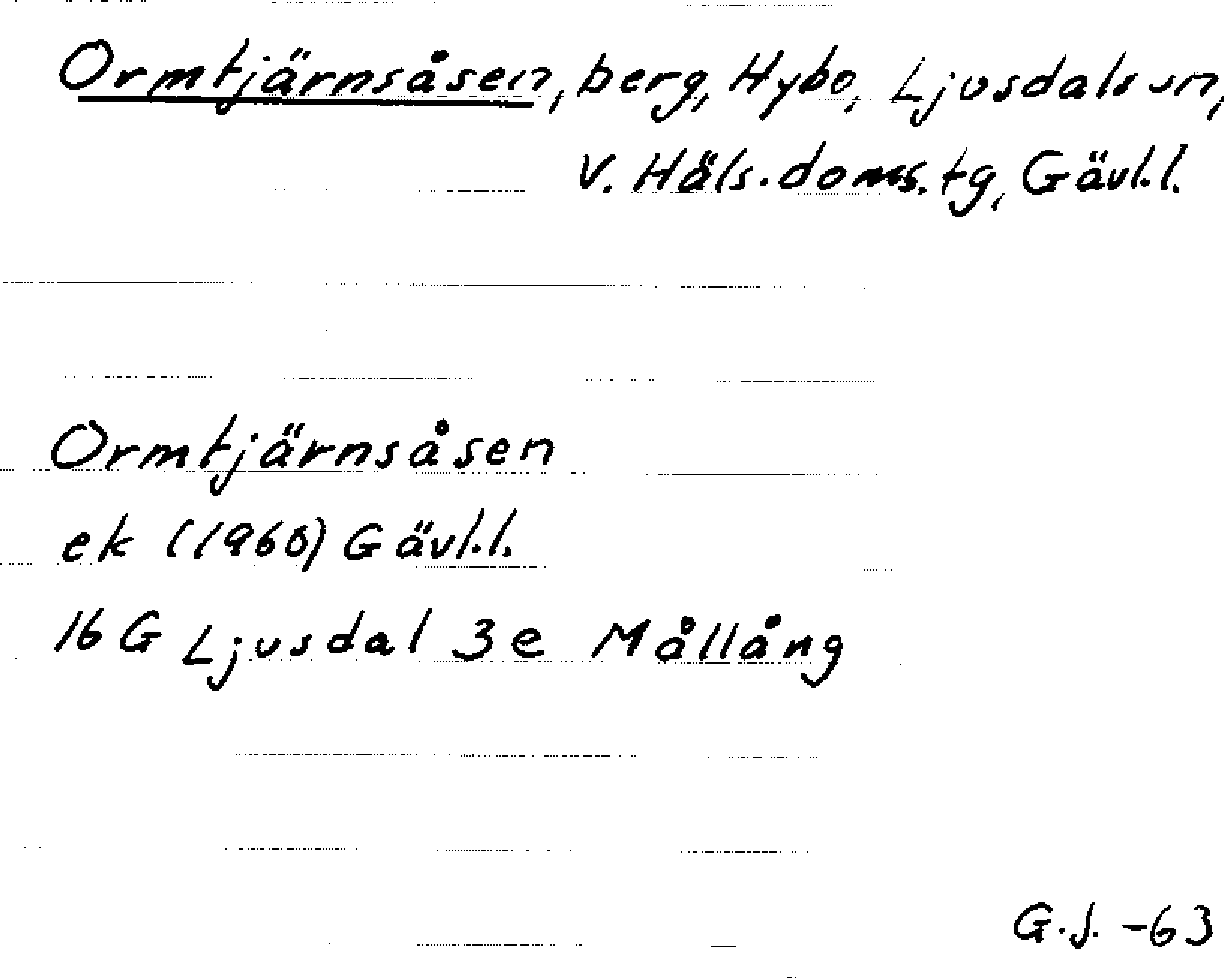 Ormtjärnsåsen, berg, Hybo, Ljusdals sn,
V. Häls. doms. tg, Gävl.l.
Ormtjärnsåsen
ek (1960) Gävl.l.
16 G Ljusdal 3e Mållång
G.J. -63